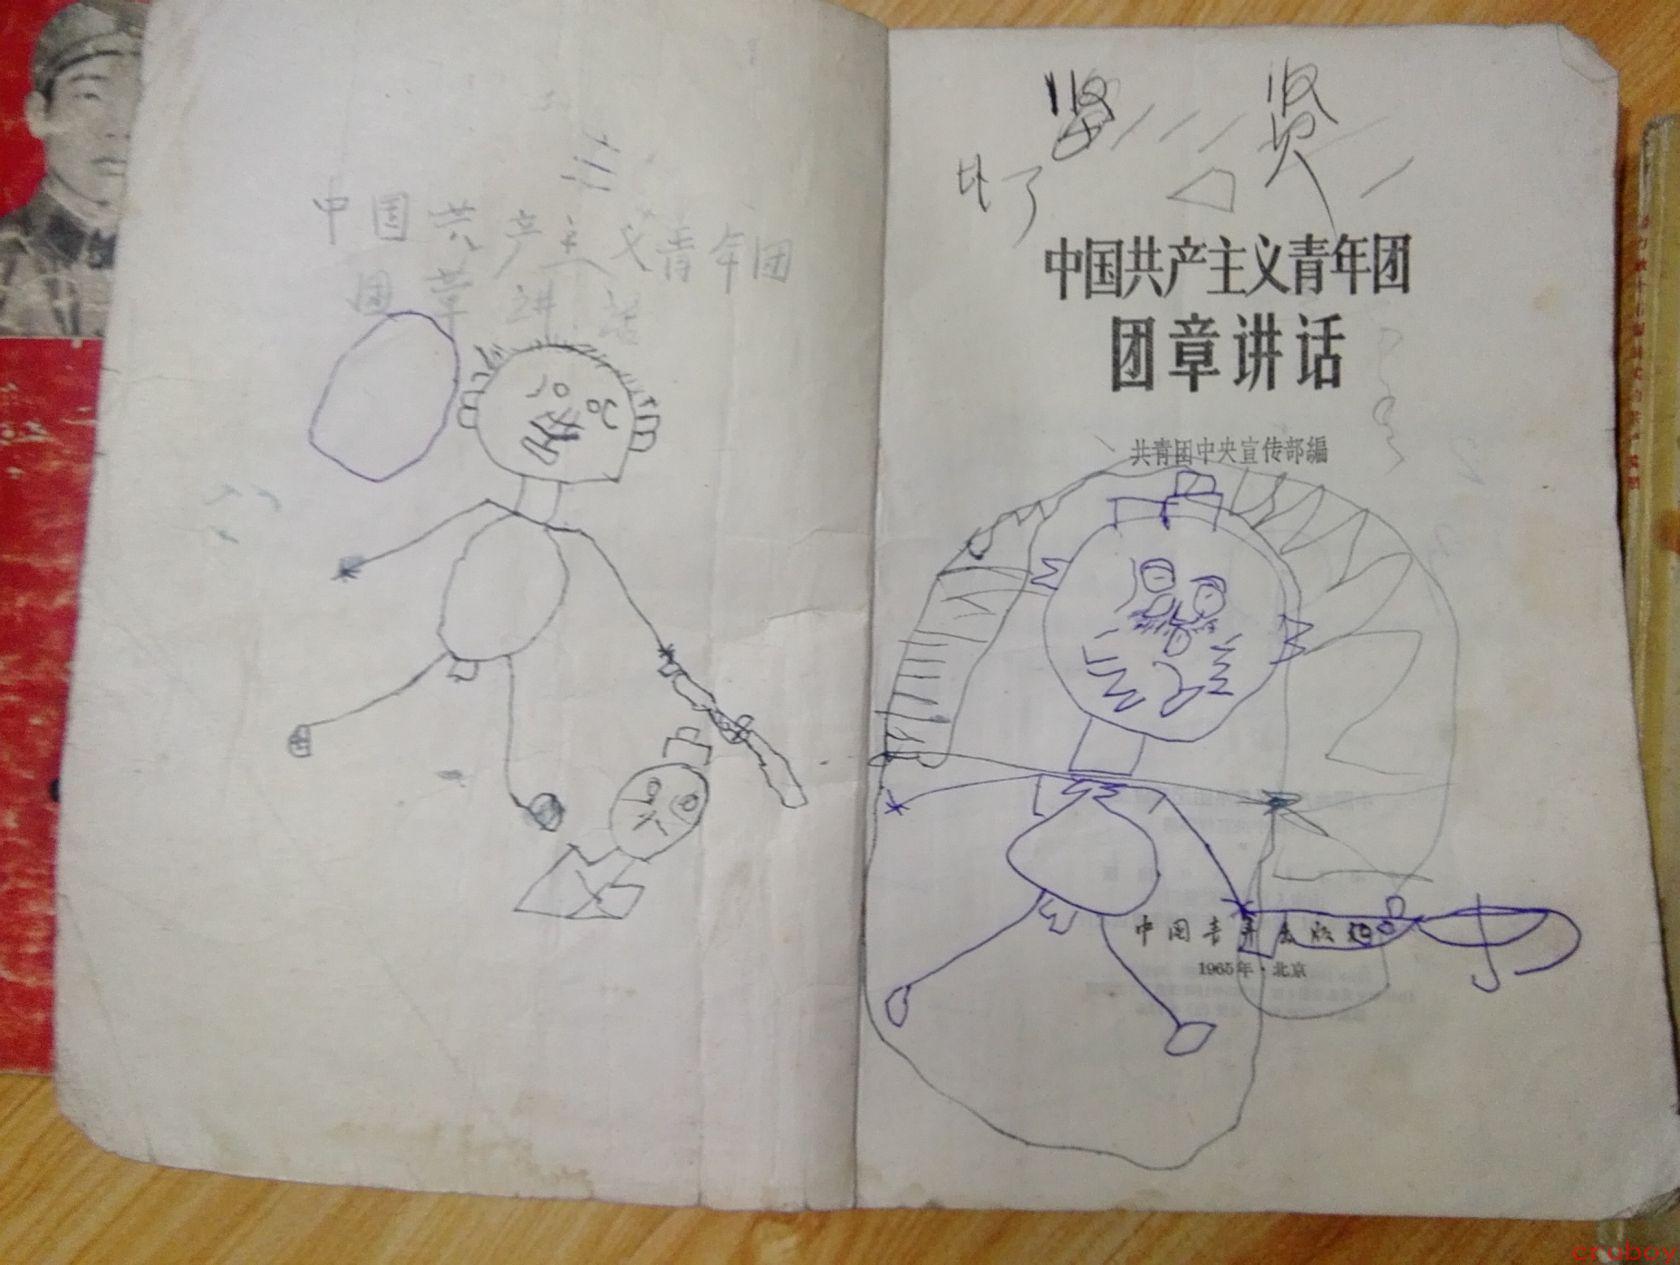 中国共产主义青年团
团章讲话
坚 贤
比了
中国共产主义青年团
团章讲话
共青团中央宣传部編
中国青年出版社
1965年·北京
crubov